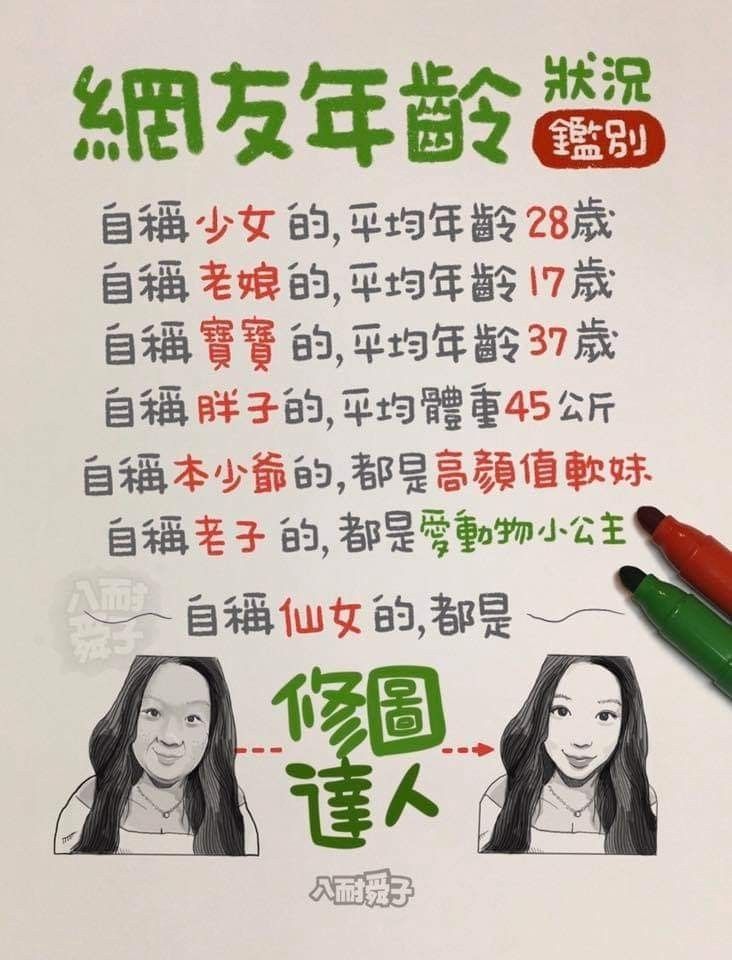 網友年齡 狀況
鑑別
自稱少女的,平均年齡28歲
自稱老娘的,平均年齡17歲
自稱寶寶的,平均年齡37歲
自稱胖子的,平均體重45公斤
自稱本少爺的,都是高顏值軟妹
自稱老子的,都是愛動物小公主
自稱仙女的,都是
修圖
達人
八耐
舜子
八耐舜子